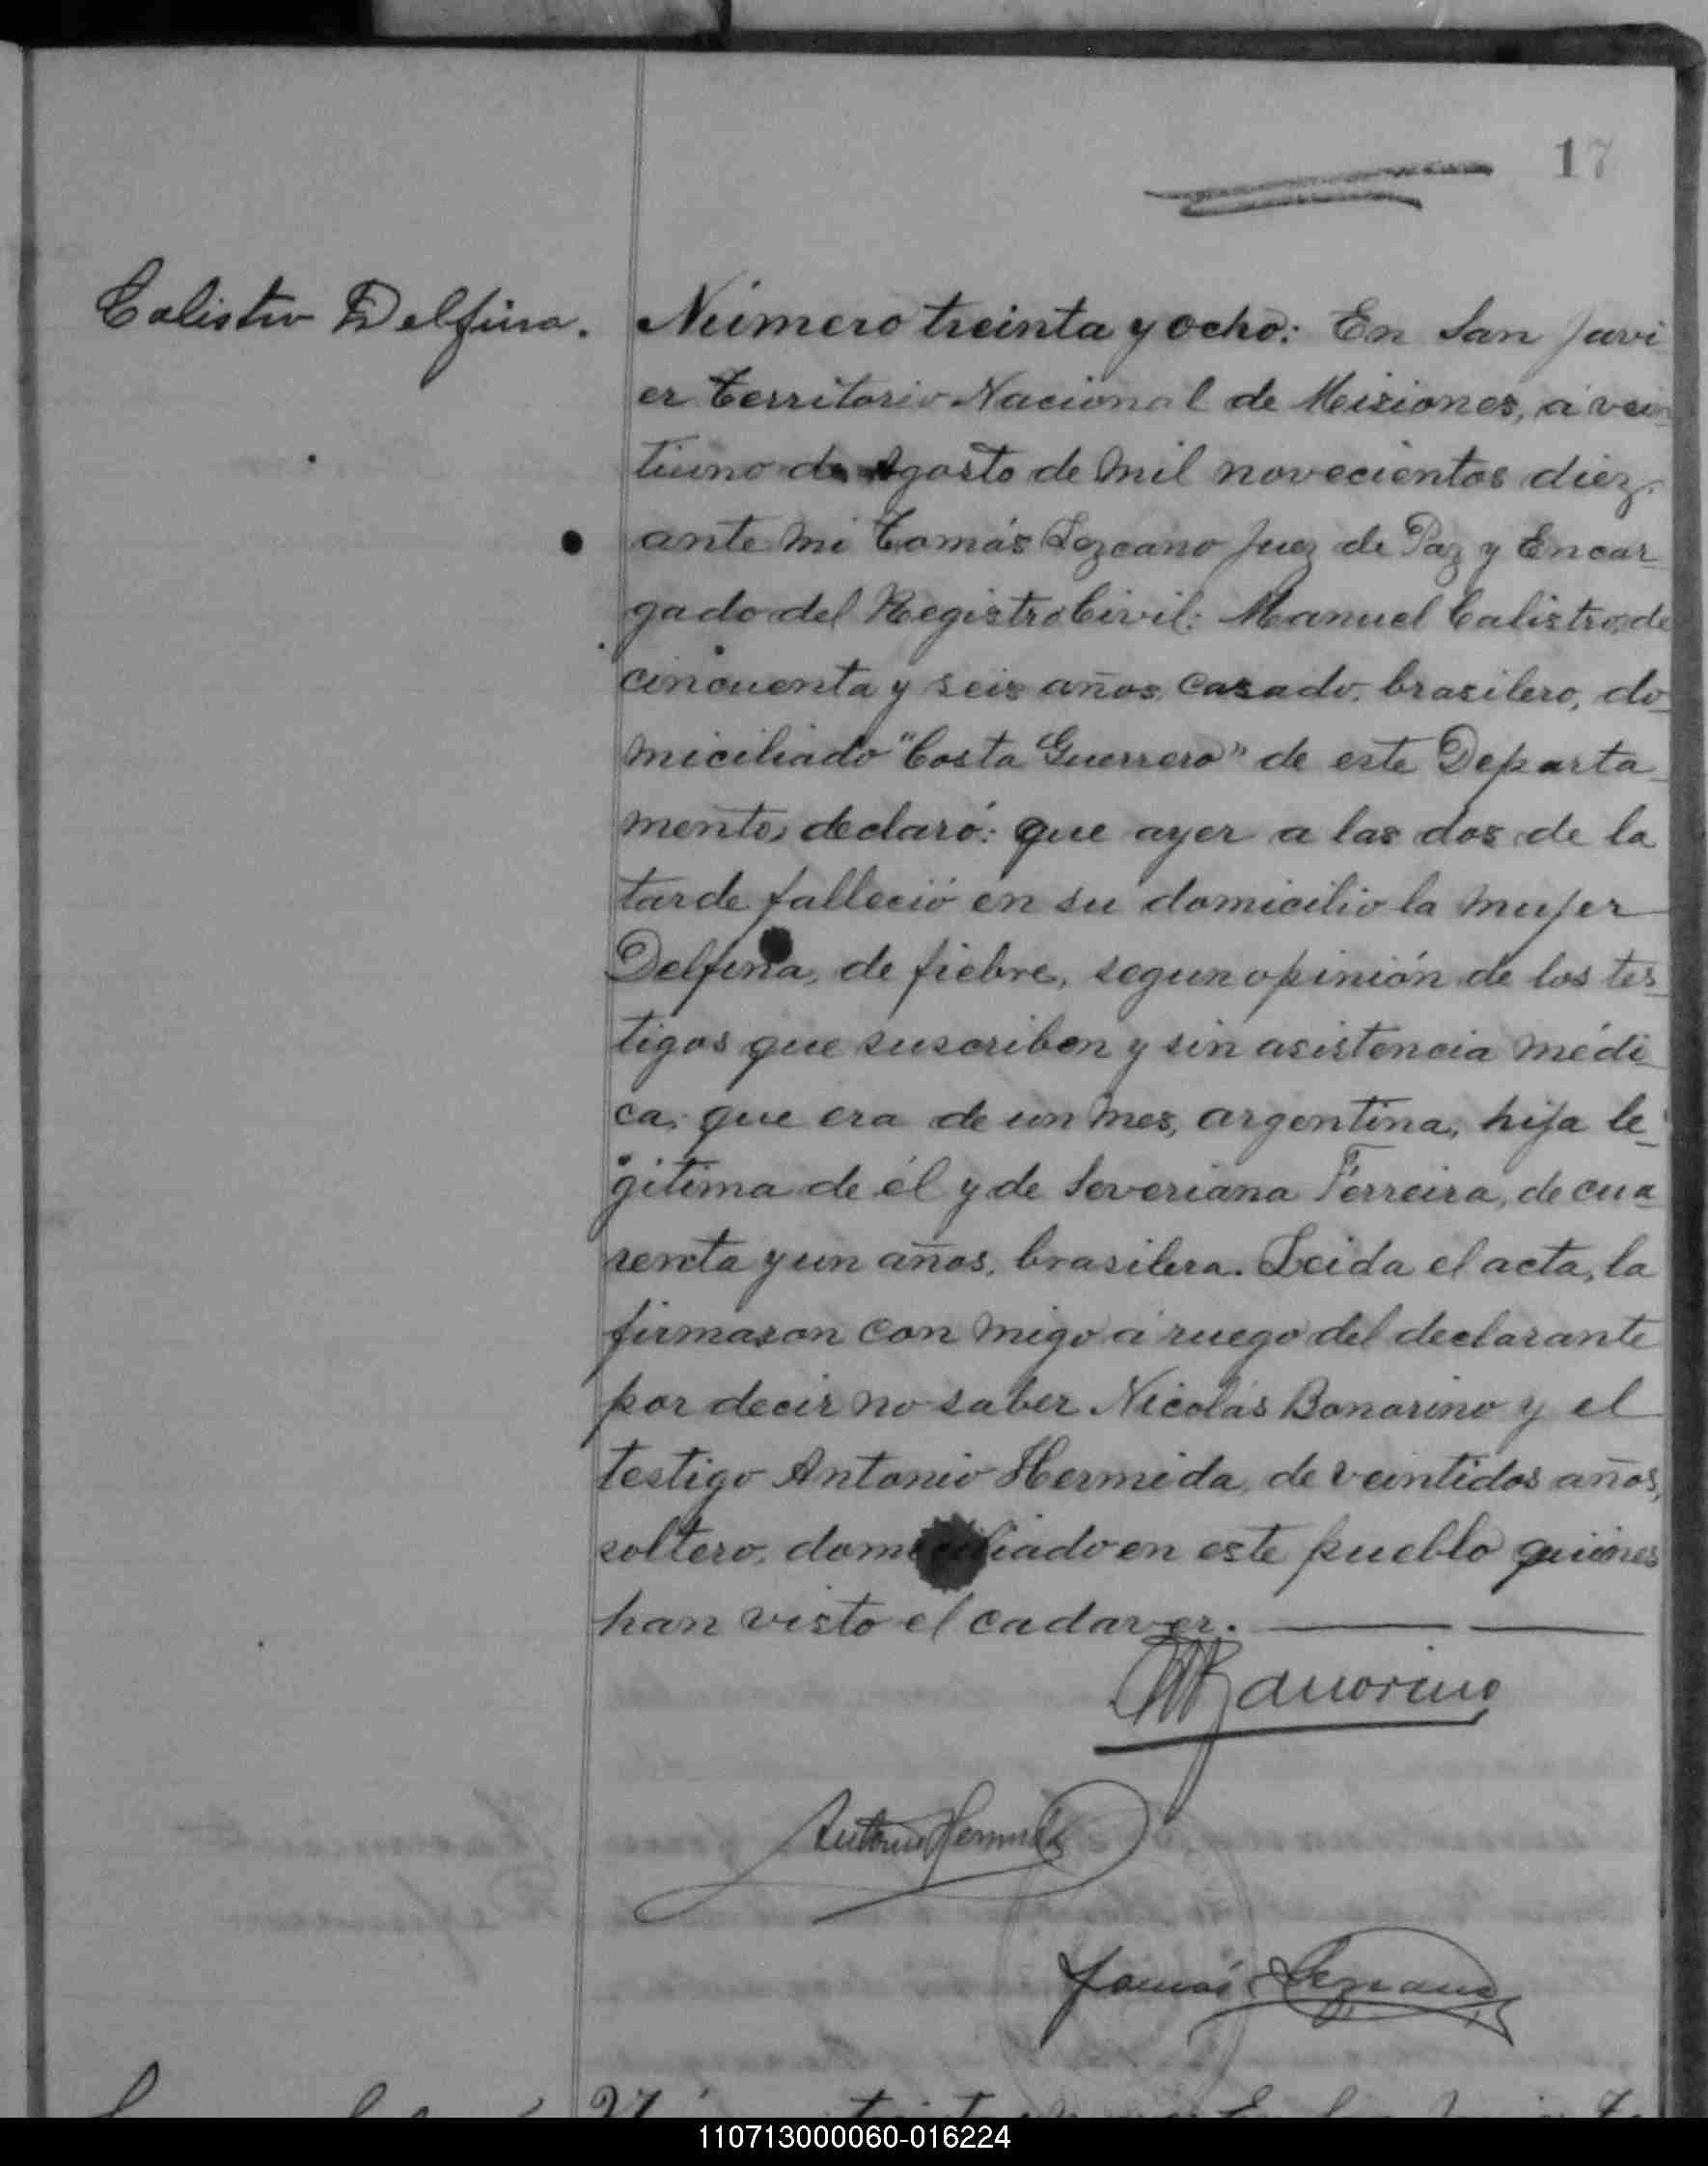 17
Calistro Delfina.
Número treinta y ocho: En San Javi
er Territorio Nacional de Misiones, á vein
tiuno de Agosto de mil novecientos diez.
ante mi Tomás Lezcano Juez de Paz y Encar-
gado del Registro Civil: Manuel Calistro, de
cincuenta y seis años, casado, brasilero, do-
miciliado "Costa Guerrero" de este Departa-
mento, declaró: que ayer a las dos de la
tarde falleció en su domicilio la mujer
Delfina, de fiebre, segun opinión de los tes-
tigos que suscriben y sin asistencia médi-
ca, que era de un mes, argentina, hija le-
gitima de él y de Severiana Ferreira, de cua-
renta y un años, brasilera. Leida el acta, la
firmaron con migo á ruego del declarante
por decir no saber Nicolás Bonorino y el
testigo Antonio Hermida, de veintidos años,
soltero, domiciliado en este pueblo quiénes
han visto el cadaver.
NBonorino
Antonio Hermida
Tomás Lezcano
110713000060-016224